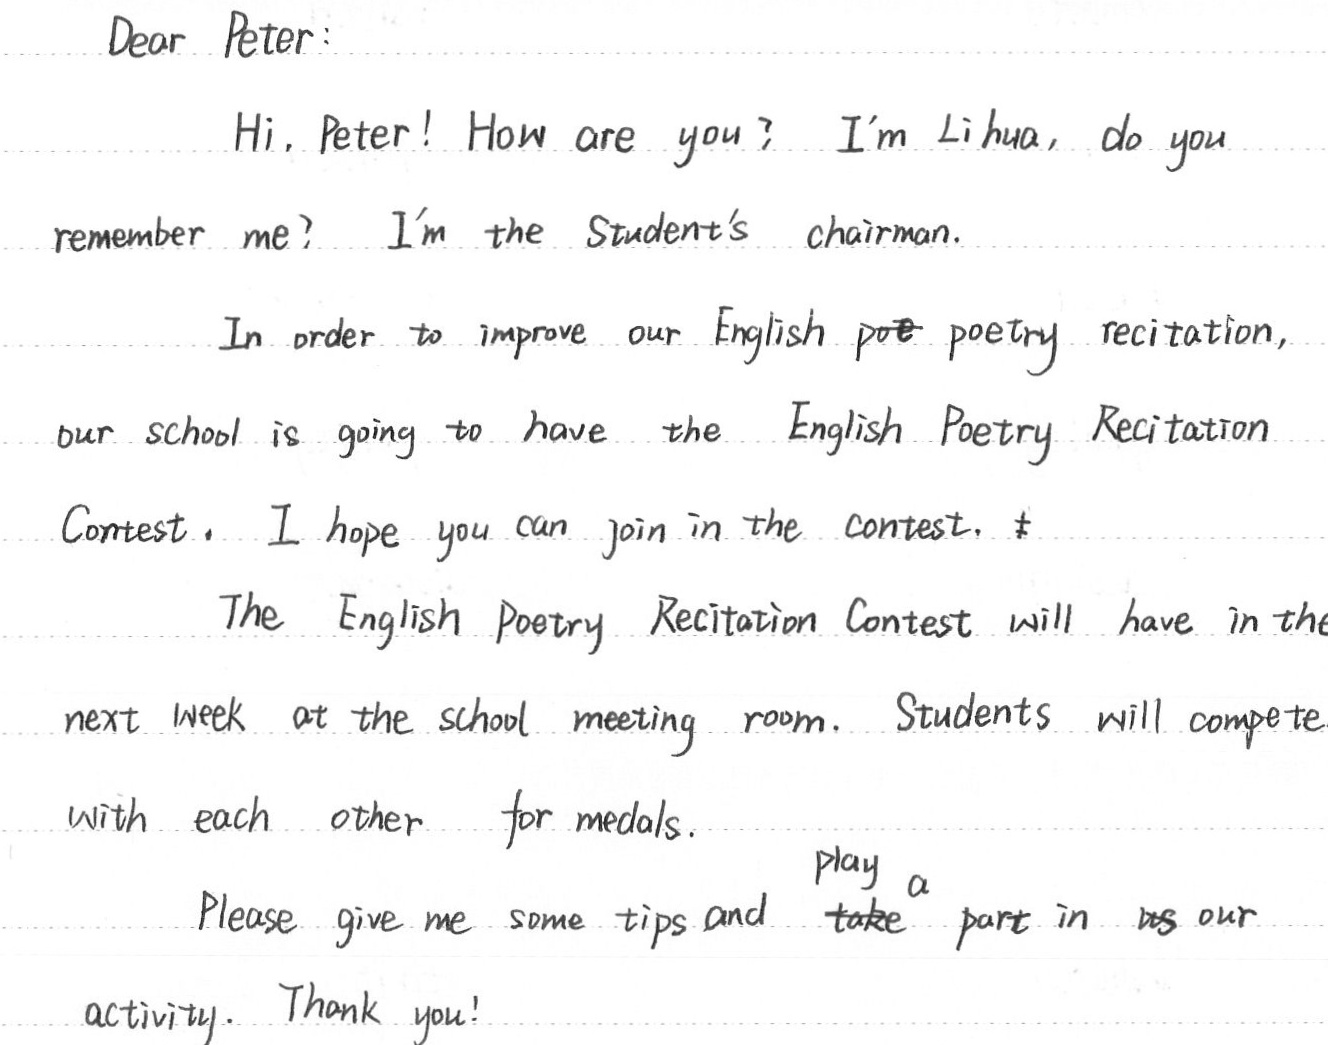 Dear Peter:
Hi, Peter! How are you? I'm Li hua, do you
remember me? I'm the Student's chairman.
In order to improve our English poe poetry recitation,
our school is going to have the English Poetry Recitation
Contest. I hope you can join in the contest.
The English Poetry Recitation Contest will have in the
next week at the school meeting room. Students will compete
with each other for medals.
play a
Please give me some tips and take part in us our
activity. Thank you!